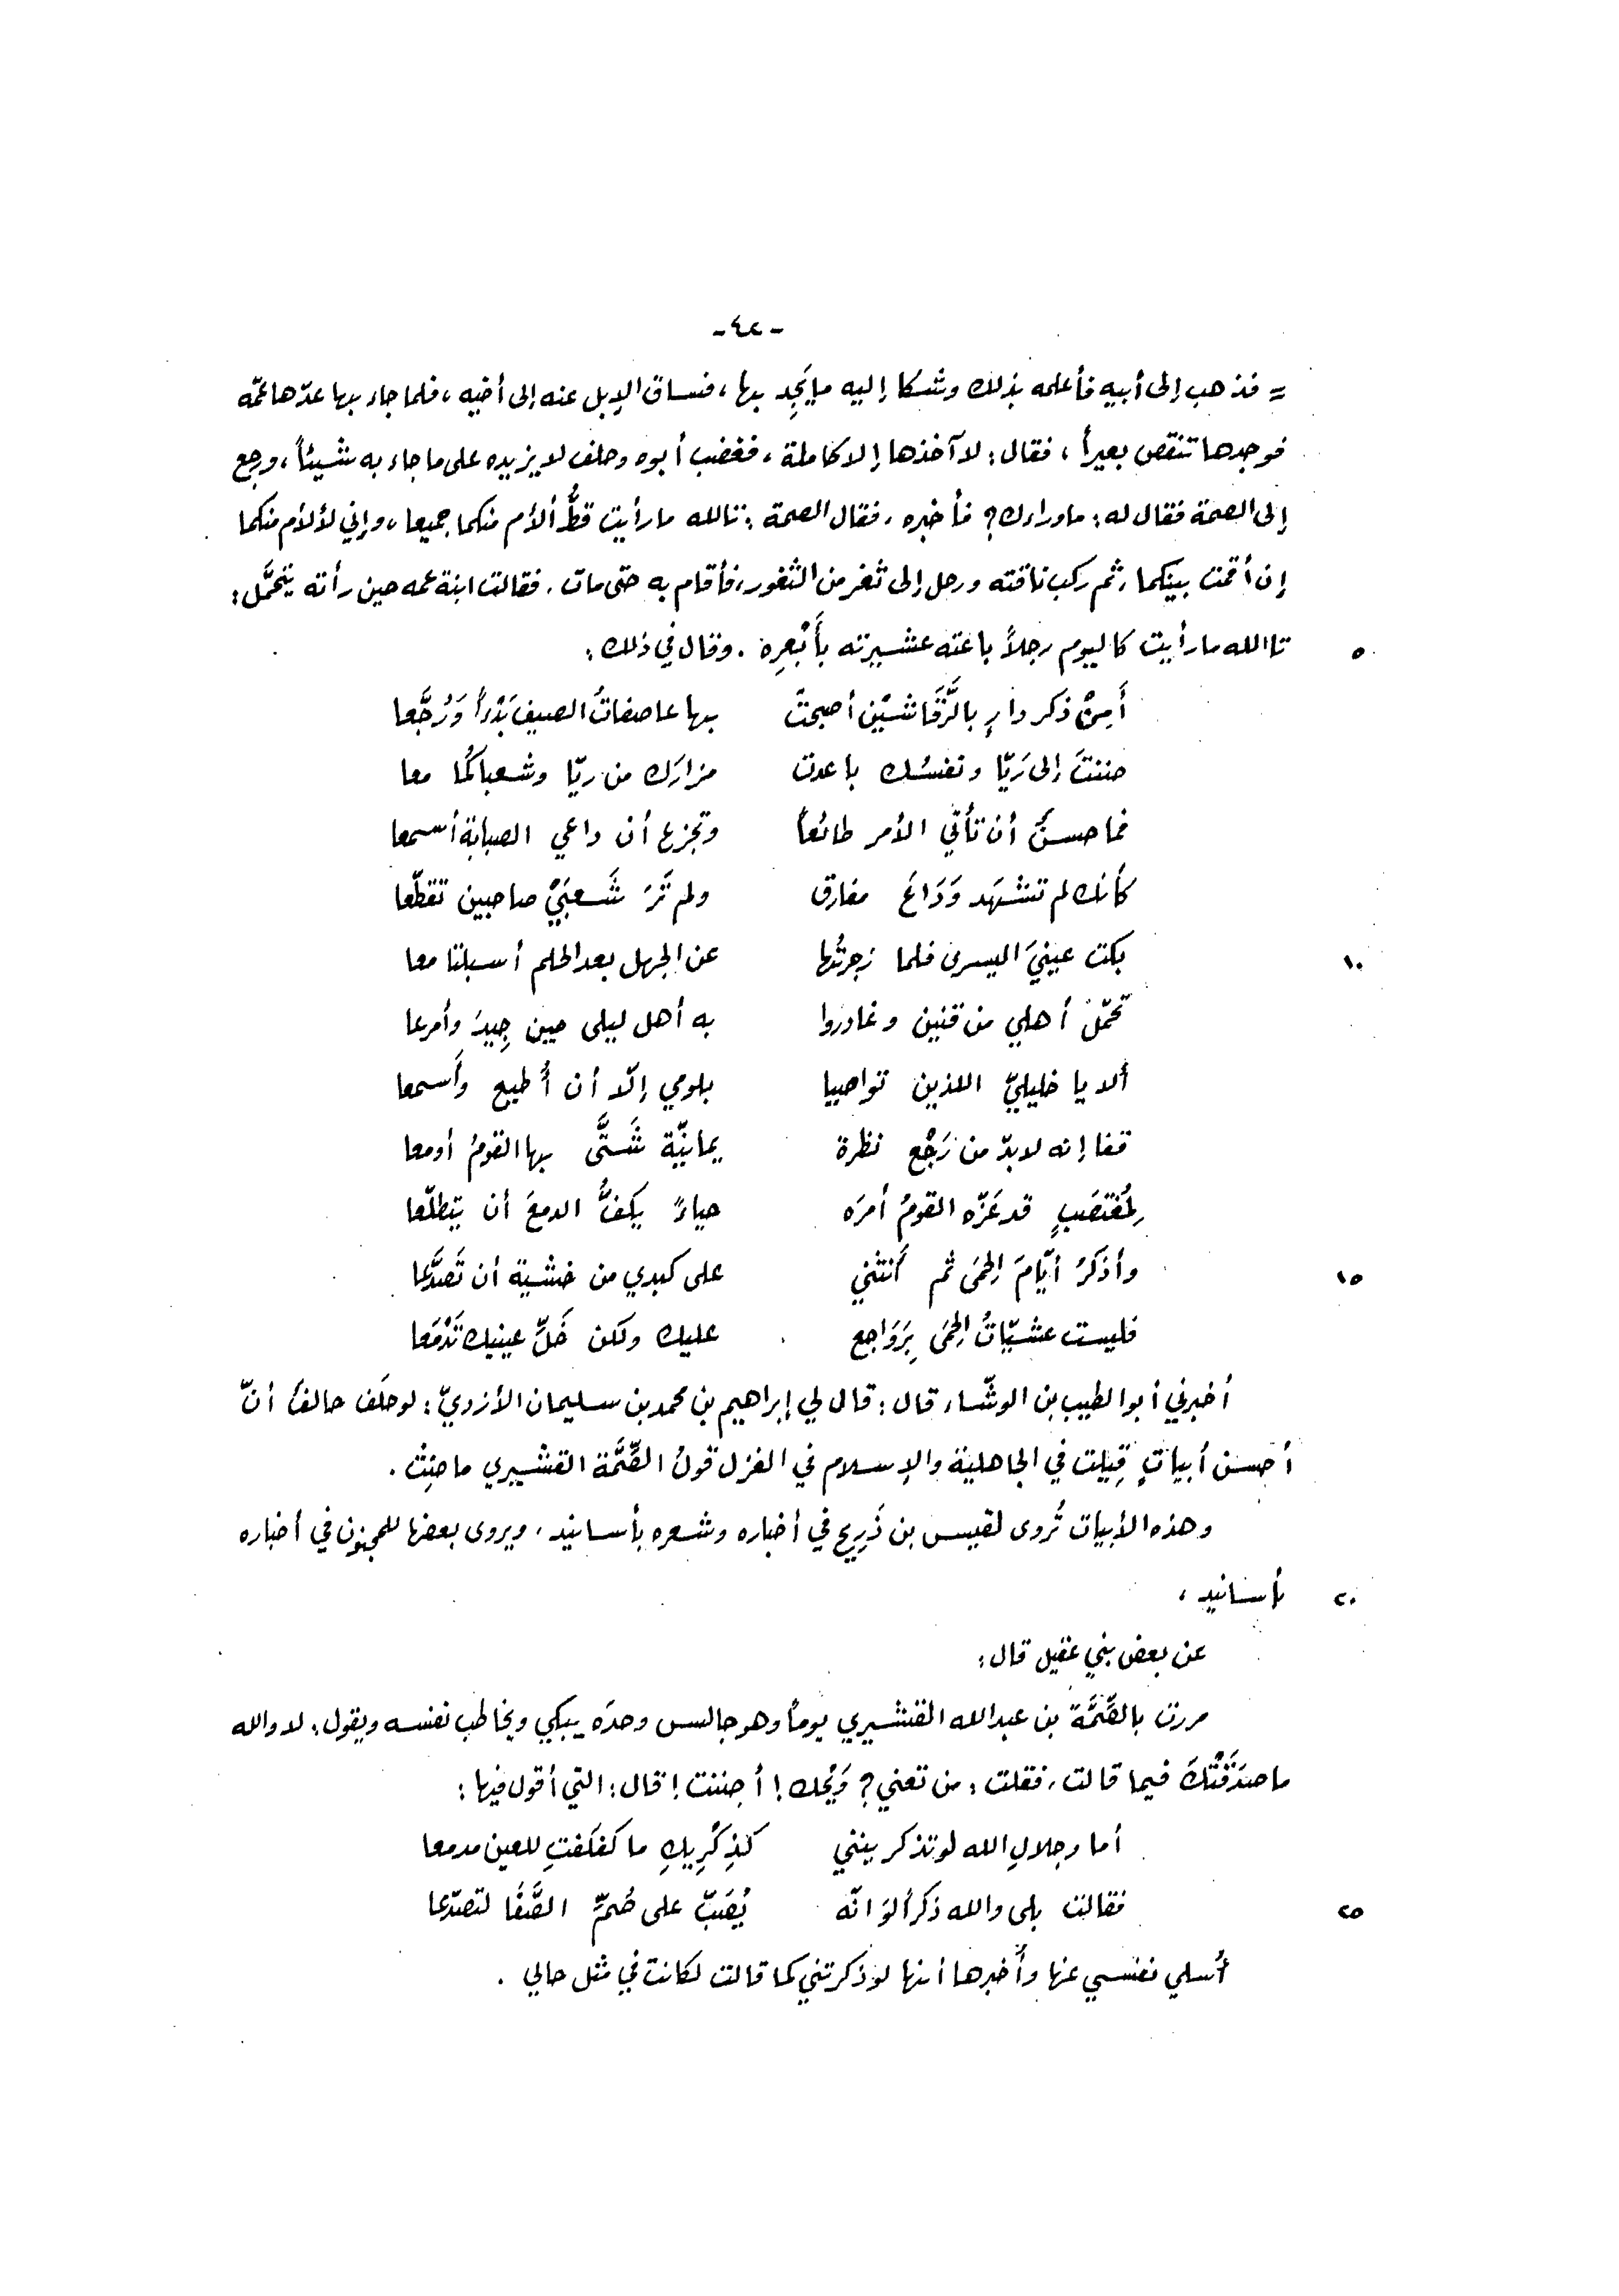 -٤٢-
= فذهب إلى أبيه فأعلمه بذلك وشكا إليه ما يَجِد بها، فساق الإبل عنه إلى أخيه، فلما جاء بها عدّها عمّه
فوجدها تنقص بعيراً، فقال: لا آخذها إلا كاملة، فغضب أبوه وحلف لا يزيده على ما جاء به شيئاً، ورجع
إلى الصمة فقال له: ما وراءك؟ فأخبره، فقال الصمة: تالله ما رأيت قطُّ ألأم منكما جميعا، وإني لألأم منكما
إن أقمت بينكما، ثم ركب ناقته ورحل إلى ثغر من الثغور، فأقام به حتى مات. فقالت ابنة عمه حين رأته يتحمَّل:
٥ تا الله ما رأيت كاليوم رجلاً باعته عشيرته بأَبْعِرة. وقال في ذلك:
أَمِنْ ذكر دارٍ بالرَّقَاشَيْن أصبحتْ بها عاصفاتُ الصيف بَدْءاً وَرُجَّعا
حننتَ إلى رَيّا ونفسُك باعدت مزارَك من ريّا وشعباكُما معا
فما حسنٌ أن تأتي الأمر طائعاً وتجزع أن داعي الصبابة أسمعا
كأنك لم تشهَد وَدَاعَ مفارق ولم تَرَ شَعبَيْ صاحبين تقطّعا
١٠ بكت عينيَ اليسرى فلما زجرتُها عن الجهل بعد الحلم أسبلتا معا
تحمّلَ أهلي من قنين وغادروا به أهل ليلى حين جِيدَ وأمرعا
ألا يا خليليّ اللذين تواصيا بلومي إلّا أن أُطيع وأَسمعا
قفا إنه لا بدّ من رَجْع نظرة يمانيّة شَتَّى بها القومُ أو معا
لمُغتصَبٍ قد عَزّه القومُ أمرَه حياءً يكفُّ الدمعَ أن يتطلّعا
١٥ وأذكرُ أيّامَ الحِمَى ثم أنثني على كبدي من خشية أن تَصَدَّعا
فليست عشيّاتُ الحِمَى بِرَوَاجع عليك ولكن خَلِّ عينيك تَدْمَعا
أخبرني أبو الطيب بن الوشّاء قال: قال لي إبراهيم بن محمد بن سليمان الأزديّ: لو حلَف حالفٌ أنّ
أحسن أبياتٍ قِيلت في الجاهلية والإسلام في الغزل قولُ الصِّمَّة القشيري ما حَنِثَ.
وهذه الأبيات تُروى لقيس بن ذَرِيح في أخباره وشعره بأسانيد، ويروى بعضها للمجنون في أخباره
٢٠ بأسانيد،
عن بعض بني عقيل قال:
مررت بالصِّمَّة بن عبدالله القشيري يوماً وهو جالس وحدَه يبكي ويخاطب نفسه ويقول: لا والله
ما صَدَقَتْكَ فيما قالت، فقلت: من تعني؟ وَيْحك! أجننت! قال: التي أقول فيها:
أما وجلالِ الله لو تذكرينني كذِكْرِيكِ ما كفكَفتِ للعين مدمعا
٢٥ فقالت بلى والله ذكراً لوَ انّه يُصَبّ على صُمِّ الصَّفَا لتصدّعا
أُسلي نفسي عنها وأُخبرها أنها لو ذكرتني كما قالت لكانت في مثل حالي.